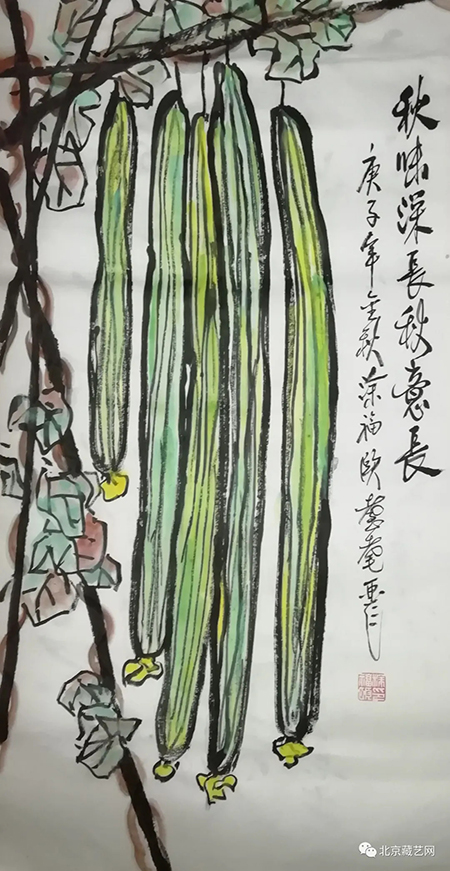 秋味深長秋意長
庚子年金秋徐福欧
北京藏艺网